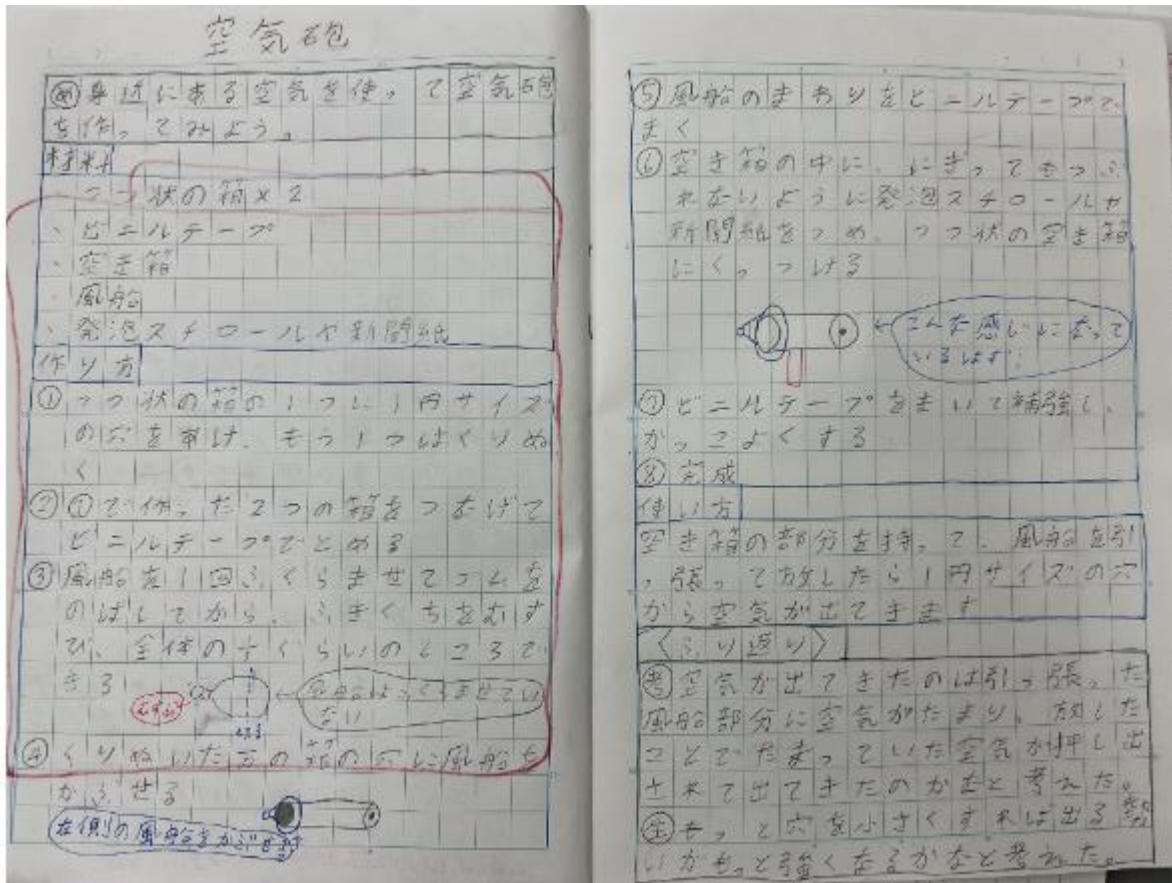 空気砲
め 身近にある空気を使って空気砲
を作ってみよう。
材料
・つつ状の箱×2
・ビニルテープ
・空き箱
・風船
・発泡スチロールや新聞紙
作り方
① つつ状の箱の1つに1円サイズ
の穴を開け、もう1つはくりぬ
く
② ①で作った2つの箱をつなげて
ビニルテープでとめる
③ 風船を1回ふくらませてゴムを
のばしてから、ふきくちをむす
び、全体の くらいのところで
きる
むすぶ
風船はふくらませてい
ない
切る
④ くりぬいた方の箱の穴に風船を
かぶせる
左側の風船をかぶせ
⑤ 風船のまわりをビニルテープで
まく
⑥ 空き箱の中に、にぎってもつぶ
れないように発泡スチロールや
新聞紙をつめ、つつ状の空き箱
にくっつける
こんな感じになって
いるはず
⑦ ビニルテープをまいて補強し、
かっこよくする
⑧ 完成
使い方
空き箱の部分を持って、風船を引
っ張って放したら1円サイズの穴
から空気が出てきます
〈ふり返り〉
考 空気が出てきたのは引っ張った
風船部分に空気がたまり、放した
ことでたまっていた空気が押し出
されて出てきたのかなと考えた。
もっと穴を小さくすれば出る勢
いがもっと強くなるかなと考えた。